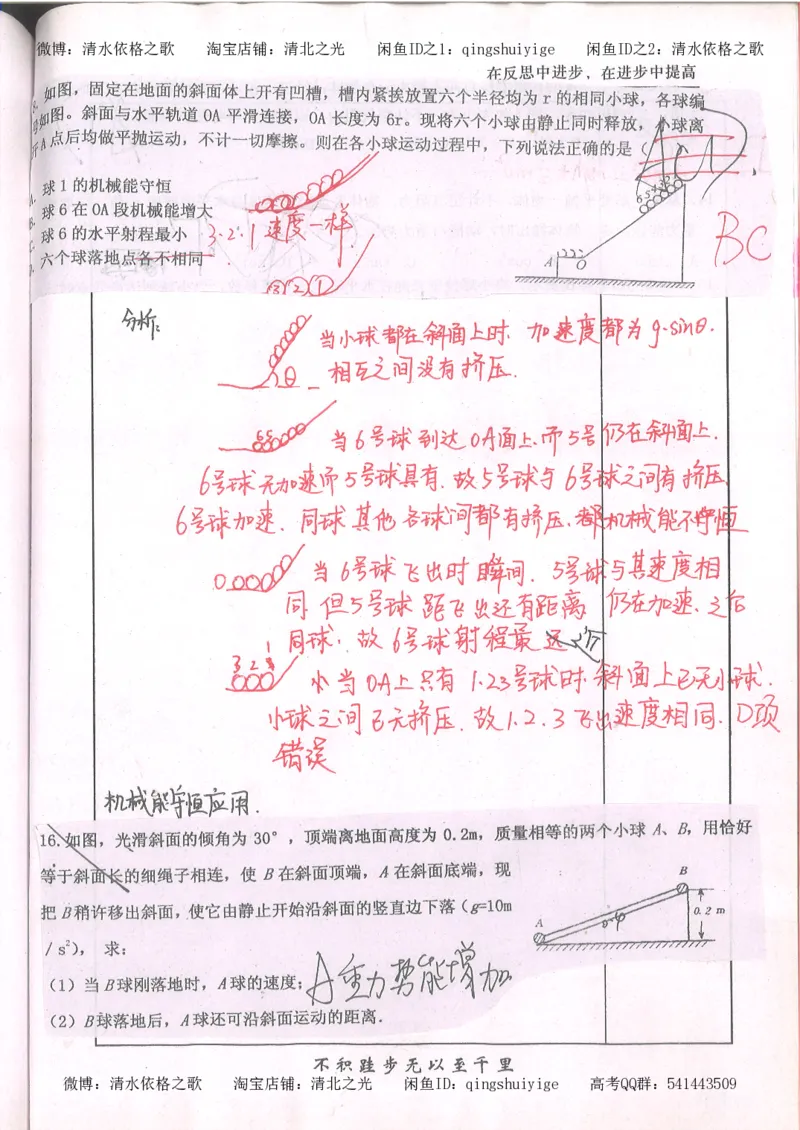 微博：清水依格之歌 淘宝店铺：清北之光 闲鱼ID之1：qingshuiyige 闲鱼ID之2：清水依格之歌
在反思中进步，在进步中提高
如图，固定在地面的斜面体上开有凹槽，槽内紧挨放置六个半径均为 r 的相同小球，各球编
如图。斜面与水平轨道 OA 平滑连接，OA 长度为 6r。现将六个小球由静止同时释放，小球离
开 A 点后均做平抛运动，不计一切摩擦。则在各小球运动过程中，下列说法正确的是（
A. 球 1 的机械能守恒
B. 球 6 在 OA 段机械能增大
C. 球 6 的水平射程最小 3.2.1 速度一样
D. 六个球落地点各不相同
BC
③②①
A O
分析:
当小球都在斜面上时. 加速度都为 g·sinθ.
相互之间没有挤压.
θ
当 6号球到达 OA面上.而5号仍在斜面上.
6号球无加速而5号球具有.故5号球与6号球之间有挤压.
6号球加速. 同球其他各球间都有挤压.都机械能不守恒
当6号球飞出时瞬间. 5号球与其速度相
同 但5号球 距飞出还有距离 仍在加速.之后
同球. 故 6号球射程最
3 2 1
小 当OA上只有 1.2 3号球时.斜面上已无小球.
小球之间已无挤压.故1.2.3飞出速度相同. D项
错误
机械能守恒应用.
16.如图，光滑斜面的倾角为 30°，顶端离地面高度为 0.2m，质量相等的两个小球 A、B，用恰好
等于斜面长的细绳子相连，使 B 在斜面顶端，A 在斜面底端，现
把 B 稍许移出斜面，使它由静止开始沿斜面的竖直边下落（g=10m
/s²），求：
B
A
0.2 m
（1）当 B 球刚落地时，A 球的速度； A重力势能增加
（2）B 球落地后，A 球还可沿斜面运动的距离.
不积跬步无以至千里
微博：清水依格之歌 淘宝店铺：清北之光 闲鱼ID：qingshuiyige 高考QQ群：541443509